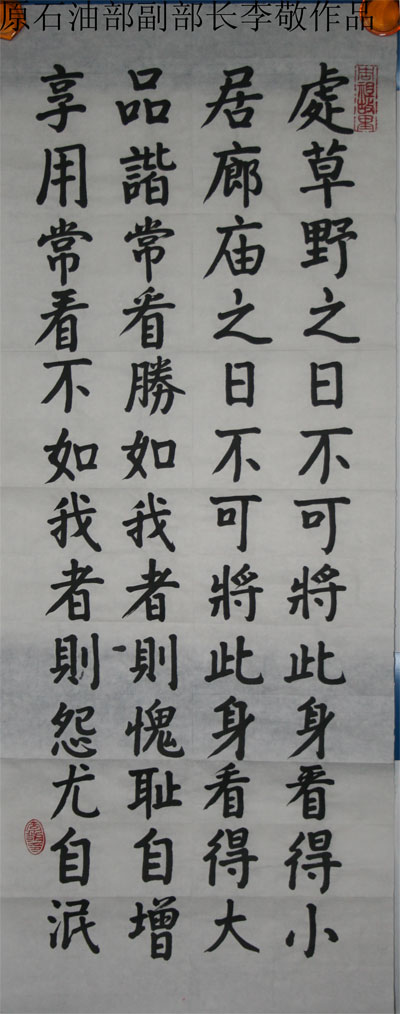 原石油部副部长李敬作品
周祖故里
處草野之日不可將此身看得小
居廊庙之日不可將此身看得大
品諧常看勝如我者則愧耻自增
享用常看不如我者則怨尤自泯